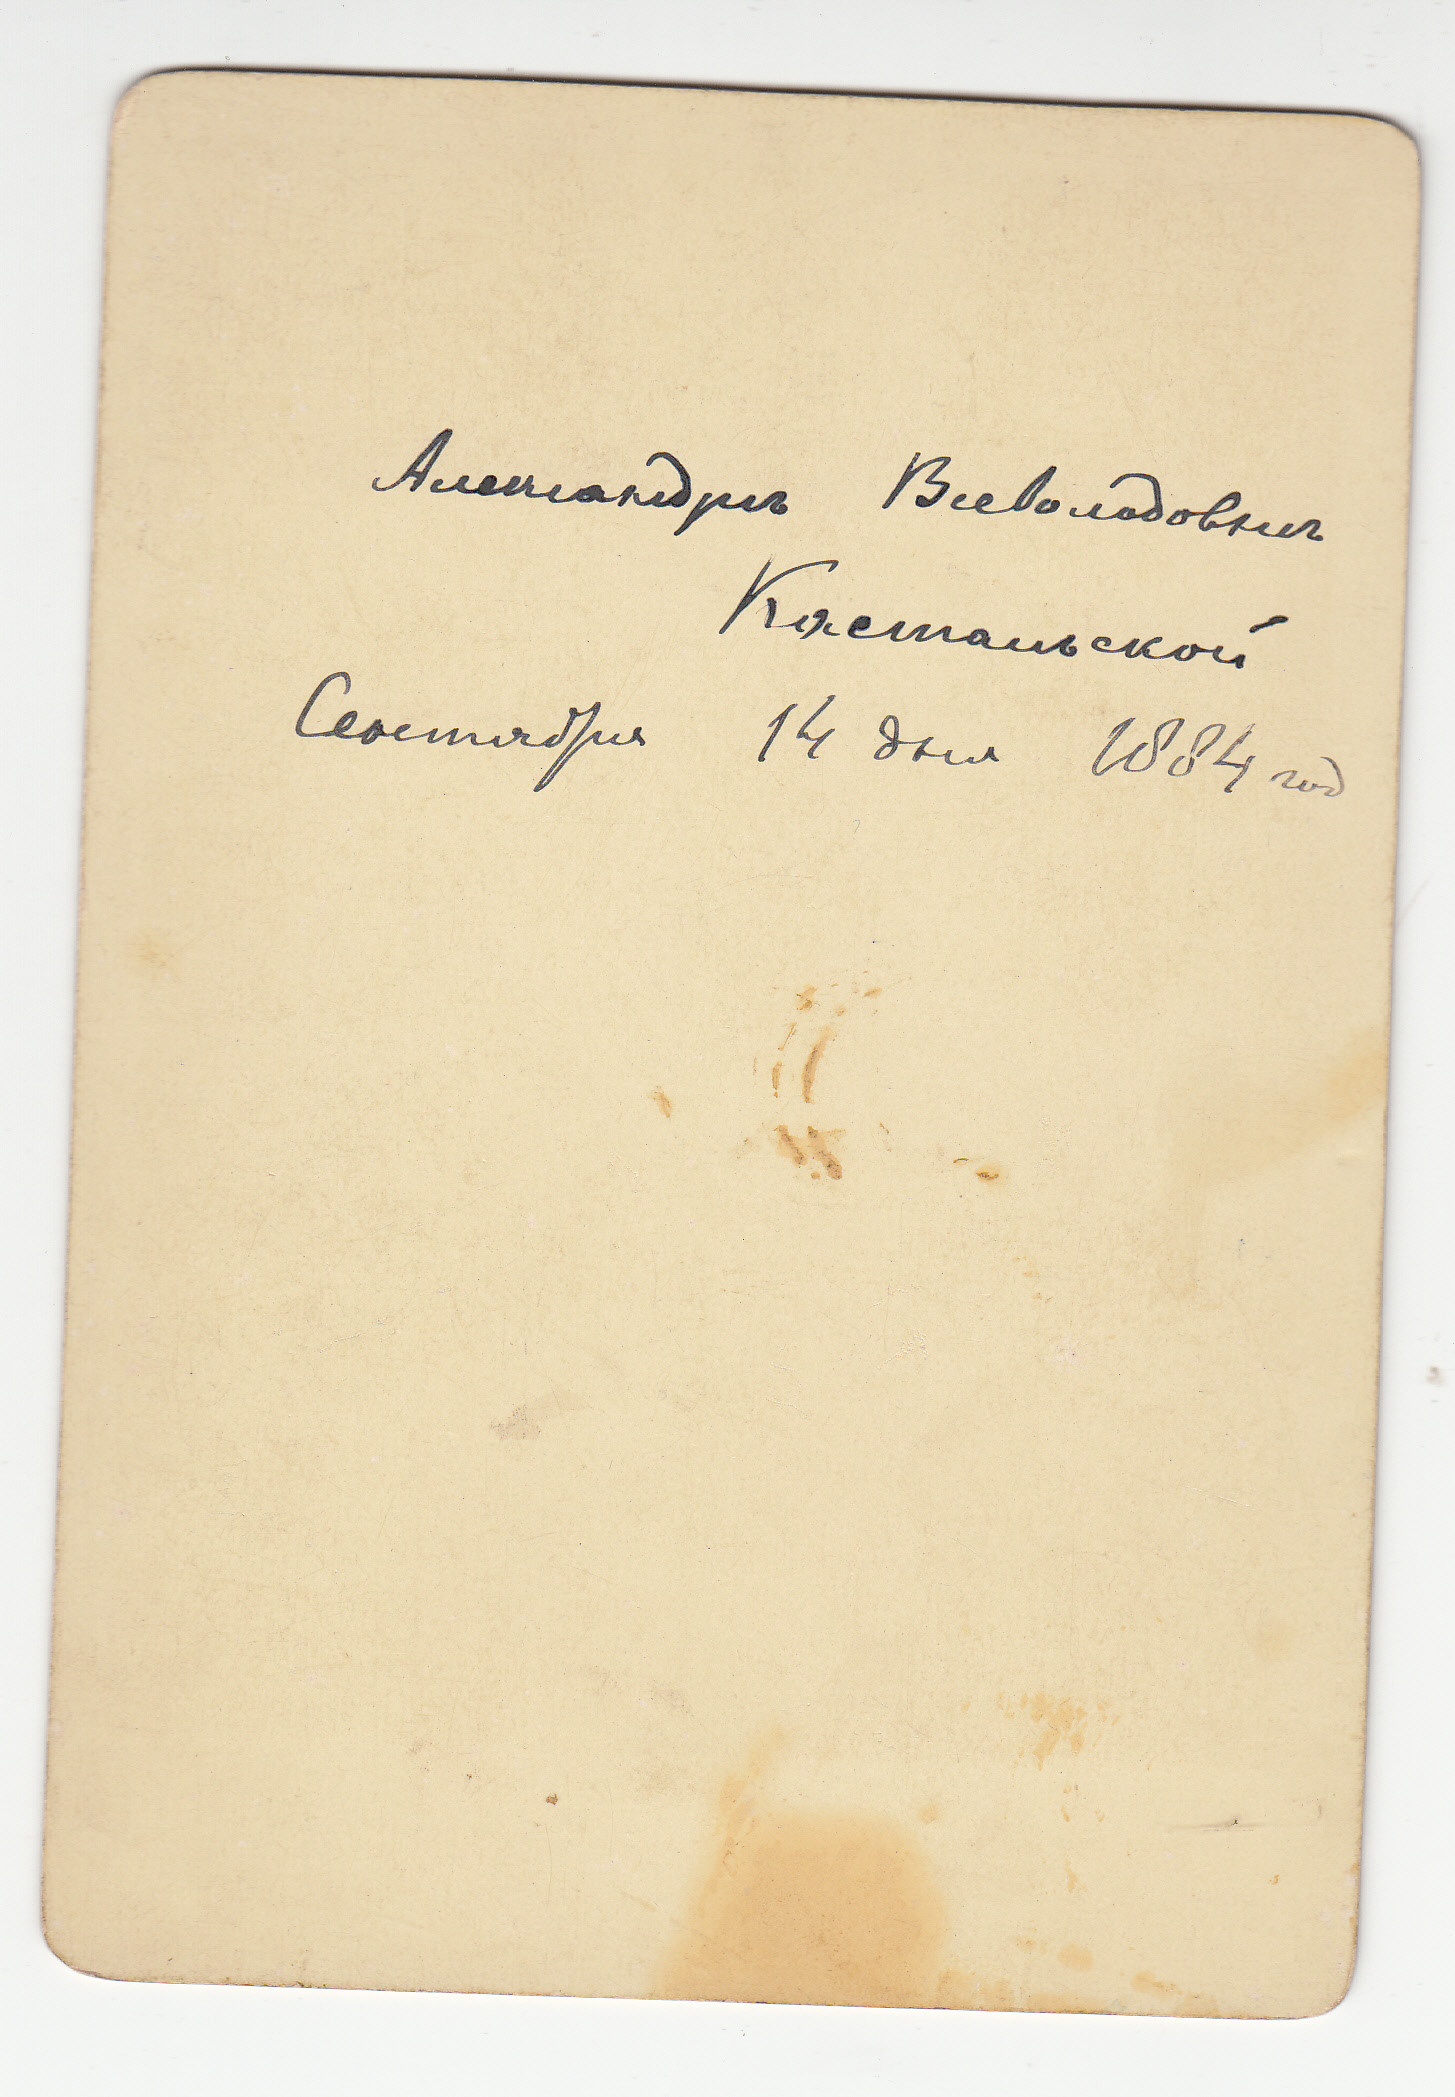 Александръ Всеволодовичъ
Кастальской
Сентября 14 дня 1884 год